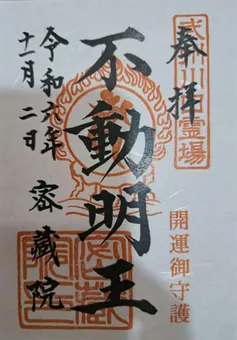 奉拝
霊場
開運御守護
不動明王
令和六年
十一月二日
密藏院